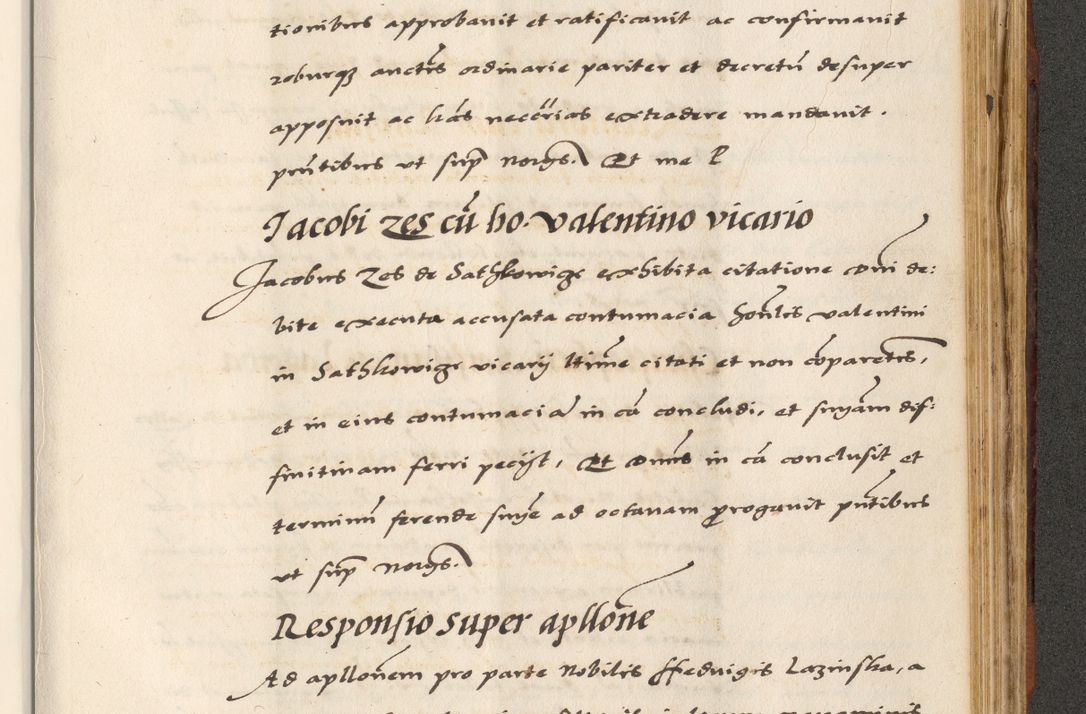 tionibus approbavit et ratificavit ac confirmavit
roburqz auctis ordinarie pariter et decretū desuper
apposuit ac has necc̄rias extradere mandavit.
pn̄tibus ut sup̄ Norys. Et me P
Jacobi zes cū ho. valentino vicario
Jacobus Zes de Sathkowicze exhibita citatione Dni de:
bite executa accusata contumacia Honlis valentini
in Sathkowicze vicarij ltime citati et non cōparetis,
et in eius contumacia in cā concludi, et snyam dif:
finitinam ferri pecijt, Et Dnus in cā conclusit et
terminū ferende snye ad octavam prorogavit pn̄tibus
ut sup̄ Norys.
Responsio super apllōne
Ad apllonem pro parte Nobilis Hedvigis Lazinska, a